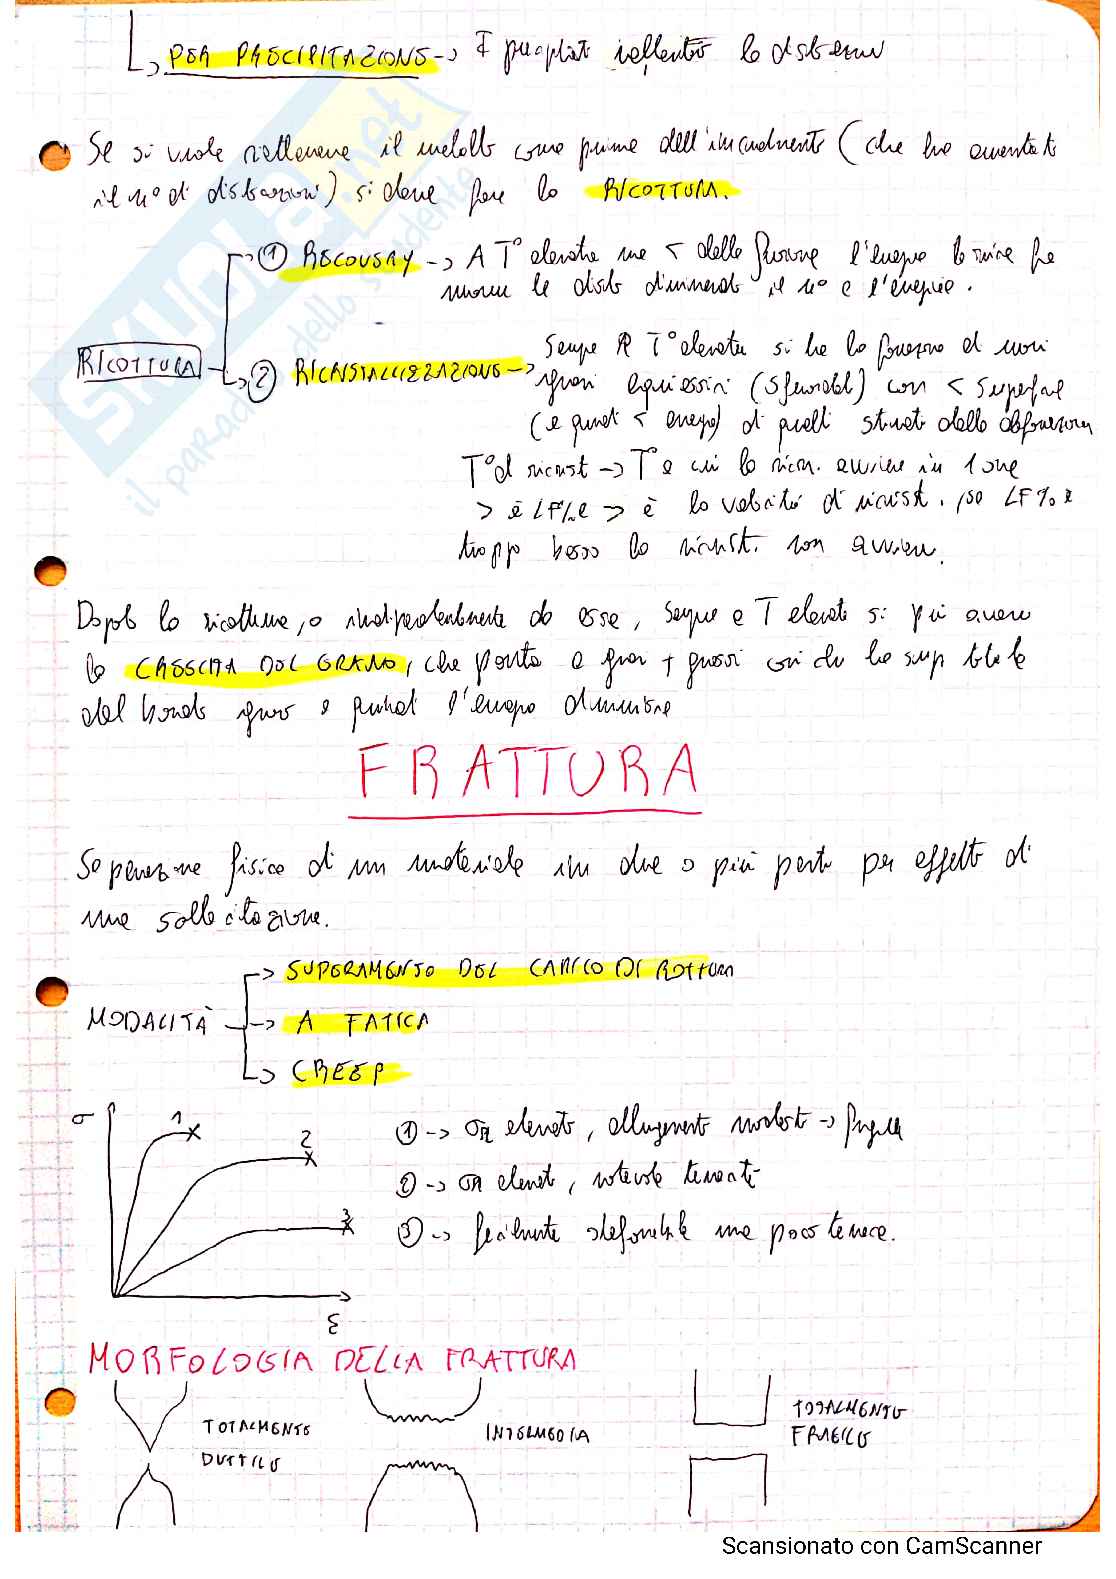 PER PRECIPITAZIONE -> I precipitati rallentano le dislocazioni
Se si vuole riottenere il metallo come prima dell'incrudimento (che ha aumentato
il n° di dislocazioni) si deve fare la RICOTTURA.
① RECOVERY -> A T° elevate ma < della fusione l'energia termica fa
muovere le disloc diminuendo il n° e l'energia.
RICOTTURA
② RICRISTALLIZZAZIONE -> Sempre A T° elevate si ha la formazione di nuovi
grani equiassici (sferoidali) con < superficie
(e quindi < energia) di quelli stirati dalla deformazione
T° di ricrist -> T° a cui la ricr. avviene in 1 ora
> è LF% e > è la velocità di ricrist. , se LF% è
troppo basso la ricrist. non avviene.
Dopo la ricottura, o indipendentemente da essa, sempre a T elevate si può avere
la CRESCITA DEL GRANO, che porta a grani + grossi così che la sup totale
del bordo grano e quindi l'energia diminuisce
FRATTURA
Separazione fisica di un materiale in due o più parti per effetto di
una sollecitazione.
MODALITÀ
-> SUPERAMENTO DEL CARICO DI ROTTURA
-> A FATICA
-> CREEP
σ 1 2 3 ε
① -> σR elevato, allungamento modesto -> fragile
② -> σR elevato, notevole tenacità
③ -> facilmente deformabile ma poco tenace.
MORFOLOGIA DELLA FRATTURA
TOTALMENTE
DUTTILE
INTERMEDIA
TOTALMENTE
FRAGILE
SKUOLA.net
il paradiso dello studente
Scansionato con CamScanner